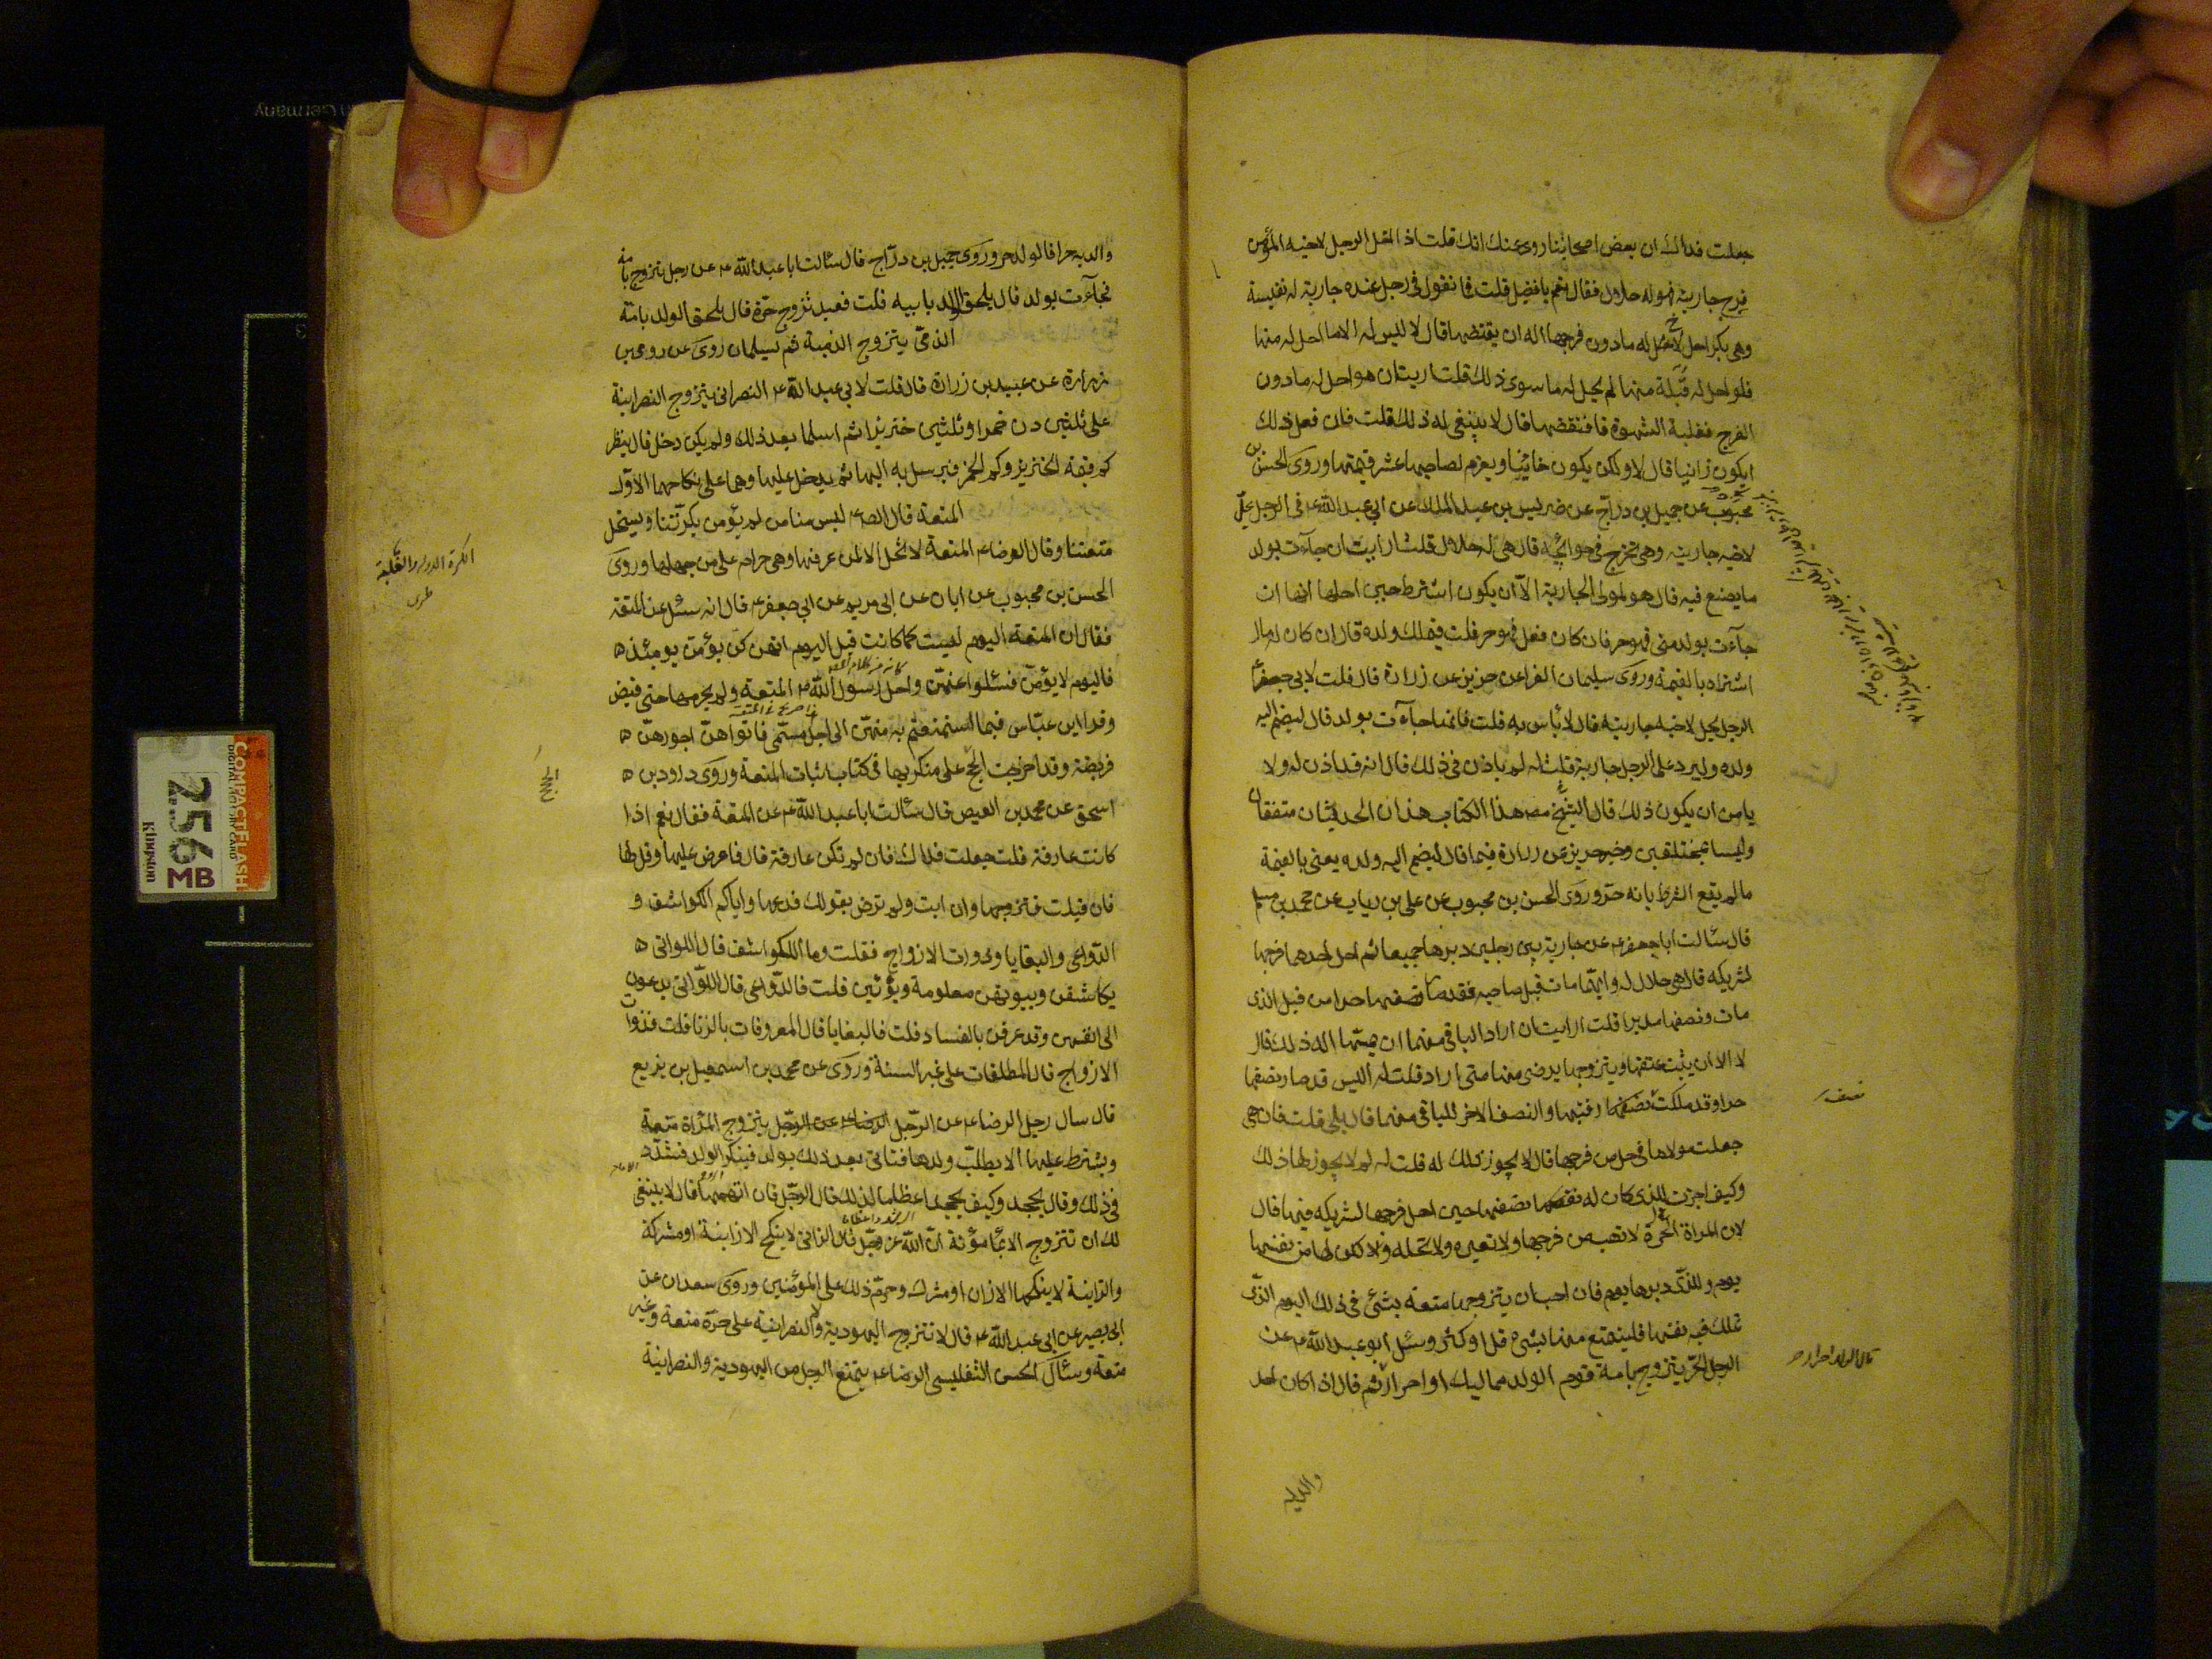 جعلت فداك ان بعض اصحابنا روى عنك انك قلت اذا احل الرجل لاخيه المؤمن
فرج جاريته فهو له حلال فقال نعم يا فضيل قلت فما تقول فى رجل عنده جارية له نفيسة
وهى بكر احل لاخ له ما دون فرجها اله ان يقتضها قال لا ليس له الا ما احل له منها
فلو احل له قبلة منها لم يحل له ما سوى ذلك قلت ارايت ان هو احل له ما دون
الفرج فغلبه الشهوة فافتضها قال لا ينبغى له ذلك قلت فان فعل ذلك
ايكون زانيا قال لا ولكن يكون خائنا ويغرم لصاحبها عشر قيمتها وروى الحسن بن
محبوب عن جميل بن دراج عن ضريس بن عبد الملك عن ابى عبد الله ع فى الرجل يحل
لاخيه جاريته وهى تخرج فى حوائجه قال هى له حلال قلت ارايت ان جاءت بولد
ما يصنع فيه قال هو لمولى الجارية الا ان يكون اشترط حين احلها انها ان
جاءت بولد منى فهو حر فان كان فعل فهو حر قلت فيملك ولده قال ان كان له مال
اشتراه بالقيمة وروى سليمان الفرا عن حريز عن زرارة قال قلت لابى جعفر ع
الرجل يحل لاخيه جاريته قال لا باس به قلت فانها جاءت بولد قال ليضم اليه
ولده وليرد على الرجل جاريته قلت له لم ياذن فى ذلك قال انه قد اذن له ولا
يامن ان يكون ذلك قال الشيخ مص هذا الكتاب هذان الحديثان متفقان
وليسا بمختلفين وخبر حريز عن زرارة فيما قال ليضم اليه ولده يعنى بالقيمة
ما لم يقع الشرط بانه حر وروى الحسن بن محبوب عن على بن رياب عن محمد بن مسلم
قال سئالت ابا جعفر ع عن جارية بين رجلين دبراها جميعا ثم احل احدهما فرجها
لشريكه قال هى حلال له وايهما مات قبل صاحبه فقد صار نصفها حرا من قبل الذى
مات ونصفها مدبرا قلت ارايت ان اراد الباقى منهما ان يمسها اله ذلك قال
لا الا ان يثبت عتقها ويتزوجها برضى منها متى اراد قلت له اليس قد صار نصفها
حرا وقد ملكت نصف رقبتها والنصف الاخر للباقى منهما قال بلى قلت فان هى
جعلت مولاها فى حل من فرجها قال لا يجوز ذلك له قلت له لم لا يجوز لها ذلك
وكيف اجزت للذى كان له نصفها حين احل فرجها لشريكه فيها قال
لان المراة الحرة لا تهب فرجها ولا تعيره ولا تحله ولكن لها من نفسها
يوم وللذى دبرها يوم فان احب ان يتزوجها متعة بشئ فى ذلك اليوم الذى
تملك فيه نفسها فليتمتع منها بشئ قل او كثر وسئل ابو عبد الله ع عن
الرجل الحر يتزوج بامة قوم الولد مماليك او احرار ثم قال اذا كان احد
والديه
والديه حرا فالولد حر وروى جميل بن دراج قال سئالت ابا عبد الله ع عن رجل تزوج بامة
فجاءت بولد قال يلحق الولد بابيه قلت فعبد تزوج حرة قال يلحق الولد بامه
الذمى يتزوج الذمية ثم يسلمان روى عن رومى بن
زرارة عن عبيد بن زرارة قال قلت لابى عبد الله ع النصرانى يتزوج النصرانية
على ثلثين دن خمرا وثلثين خنزيرا ثم اسلما بعد ذلك ولم يكن دخل قال ينظر
كم قيمة الخنزير وكم الخمر فيرسل به اليها ثم يدخل عليها وهما على نكاحهما الاول
المتعة قال الص ع ليس منا من لم يؤمن بكرتنا ويستحل
متعتنا وقال الرضا ع المتعة لا تحل الا لمن عرفها وهى حرام على من جهلها وروى
الكرة الدولة والغلبة
الحسن بن محبوب عن ابان عن ابى مريم عن ابى جعفر ع قال انه سئل عن المتعة
فقال ان المتعة اليوم ليست كما كانت قبل اليوم انهن كن يؤمن يومئذ
فاليوم لا يؤمن فسئلوا عنهن واحل رسول الله ص المتعة ولم يحرمها حتى قبض
وقرا ابن عباس فما استمتعتم به منهن الى اجل مسمى فاتوهن اجورهن
فريضة وقد اخرجت الحجج على منكريها فى كتاب اثبات المتعة وروى داود بن
اسحق عن محمد بن الفيض قال سئالت ابا عبد الله ع عن المتعة فقال نعم اذا
كانت عارفة قلت جعلت فداك فان لم تكن عارفة قال فاعرض عليها وقل لها
فان قبلت فتزوجها وان ابت ولم ترض بقولك فدعها واياكم الكواشف و
الدواعى والبغايا وذوات الازواج فقلت وما الكواشف قال اللواتى
يكاشفن وبيوتهن معلومة ويؤتين قلت فالدواعى قال اللواتى يدعون
الى انفسهن وقد عرفن بالفساد قلت فالبغايا قال المعروفات بالزنا قلت فذوات
الازواج قال المطلقات على غير السنة وروى عن محمد بن اسمعيل بن بزيع
قال سال رجل الرضا ع عن الرجل يتزوج المراة متعة
ويشترط عليها الا يطلب ولدها فتاتى بعد ذلك بولد فينكر الولد فشدد
فى ذلك وقال يجحد وكيف يجحد اعظاما لذلك قال الرجل فان اتهمها قال لا ينبغى
لك ان تتزوج الا مؤمنة ان الله عز وجل قال الزانى لا ينكح الا زانية او مشركة
والزانية لا ينكحها الا زان او مشرك وحرم ذلك على المؤمنين وروى سعدان عن
ابى بصير عن ابى عبد الله ع قال لا تتزوج اليهودية ولا النصرانية على حرة متعة وغير
متعة وسئال الحسن التفليسى الرضا ع يتمتع الرجل من اليهودية والنصرانية
COMPACTFLASH
256
MB
Kingston
Germany